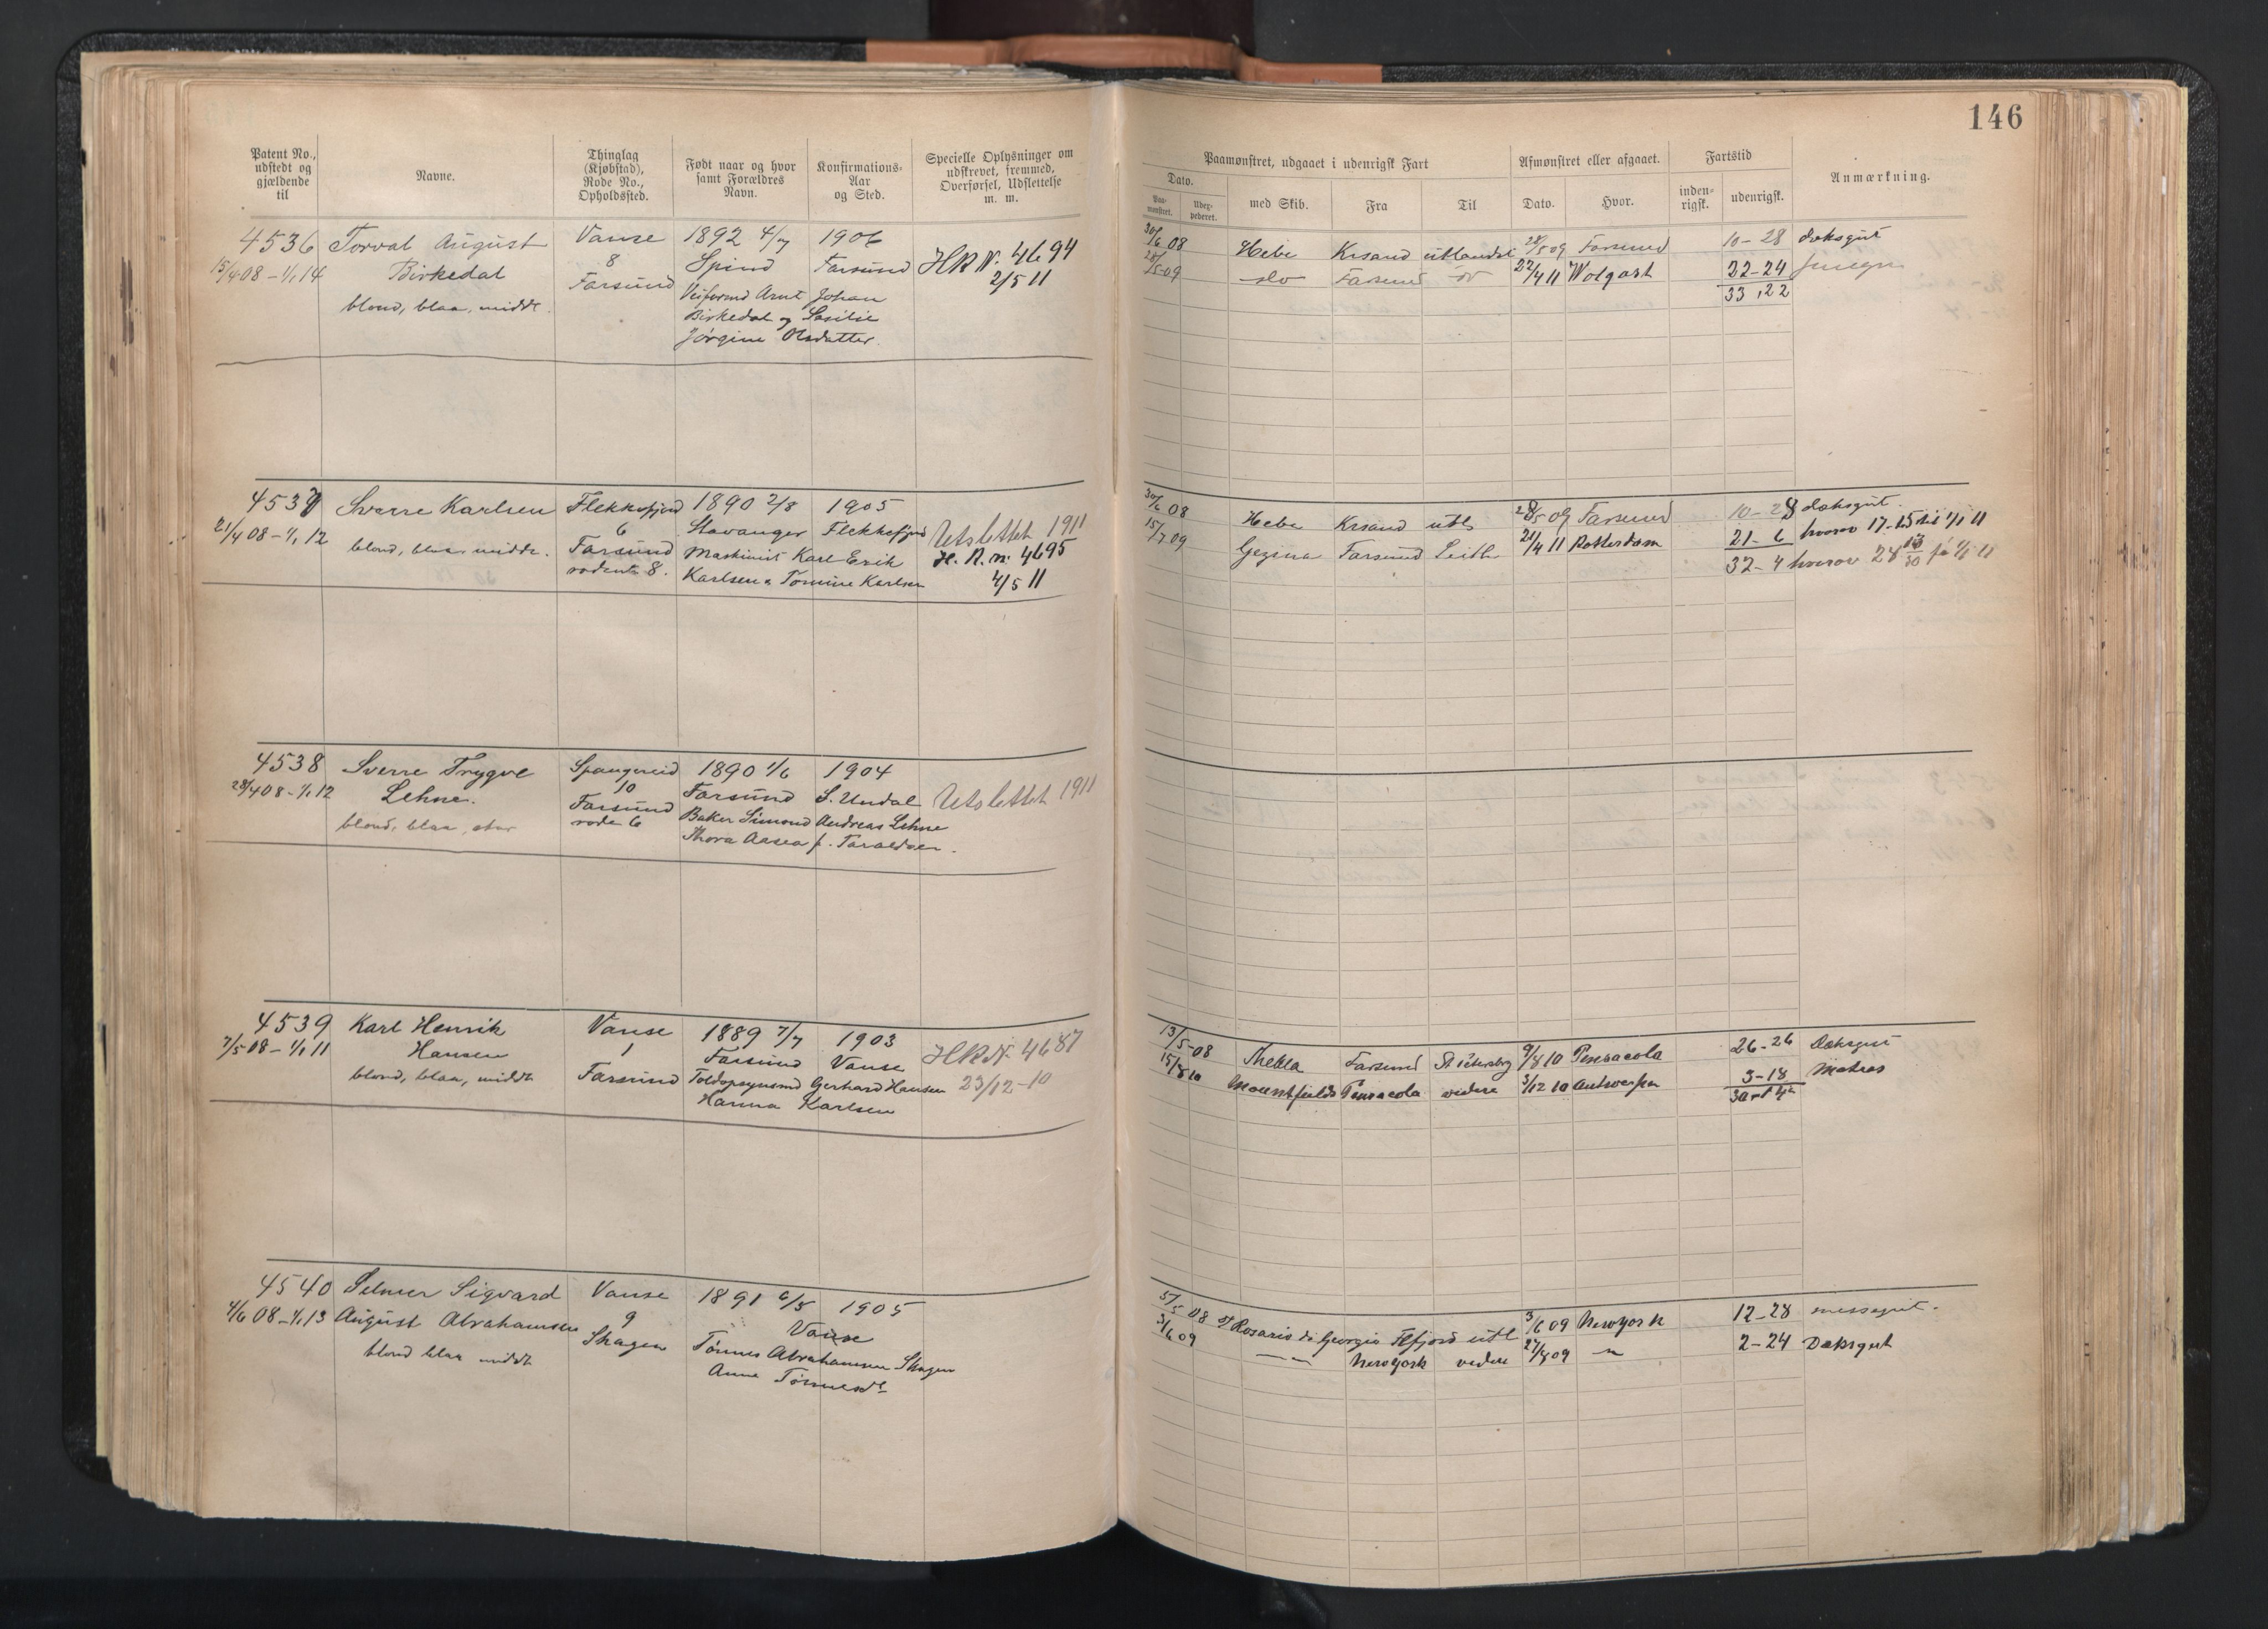 146
Patent No., udstedt og gjældende til
Navne.
Thinglag (Kjøbstad), Rode No., Opholdssted.
Født naar og hvor samt Forældres Navn.
Konfirmations-Aar og Sted.
Specielle Oplysninger om udskrevet, fremmed, Overførsel, Udslettelse m. m.
Paamønstret, udgaaet i udenrigsk Fart
Afmønstret eller afgaaet.
Fartstid
Anmærkning.
Dato.
Paa-mønstret.
Udex-pederet.
med Skib.
Fra
Til
Dato.
Hvor.
inden-rigsk.
udenrigsk.
4536 Torval August Vanse 1892 4/7 1906
15/4 08 – 1/1 14 Birkedal 8 Spind Farsund HR N. 4694
Farsund 2/5 11
blond, blaa, middl. Arnt Johan
Birkedal og
Jørgine Olsdatter
30/6 08 Hebe Krsand utlandet 28/5 09 Farsund 10-28 dæksgut
28/5 09 do Farsund do 22/4 11 Wolgast 22-24
33,22
4537 Sverre Karlsen Flekkefjord 1890 2/8 1905
21/4 08 – 1/1 12 6 Stavanger Flekkefjord Utslettet 1911
blond, blaa, middl. Farsund Maskinist Karl Erik H. R. nr. 4695
rodents 8. Karlsen & Tomine Karlsen 4/5 11
30/6 08 Hebe Krsand utl 28/5 09 Farsund 10-28 dæksgut.
15/7 09 Gezina Farsund Leith 21/4 11 Rotterdam 21-6 hvorav 17-15 til 1/1 11
32-4 hvorav 28
4538 Sverre Trygve Spangereid 1890 1/6 1904
28/4 08 – 1/1 12 Lehne. 10 Farsund S. Undal Utslettet 1911
blond, blaa, stor Farsund Baker Simond Andreas Lehne
rode 6 Thora Aasea f. Taraldsen.
4539 Karl Henrik Vanse 1889 7/7 1903
7/5 08 – 1/1 11 Hansen 1 Farsund Vanse HR N. 4687
blond, blaa, middl Farsund Toldopsynsmd Gerhard Hansen 23/12-10
Hanna Karlsen
13/5-08 Thekla Farsund St Petersborg 9/8 10 Pensacola 26-26 Dæksgut
15/8 10 Mountfields Pensacola videre 3/12 10 Antwerpen 3-18 Matros
4540 Selmer Sigvard Vanse 1891 6/5 1905
4/6 08 – 1/1 13 August Abrahamsen 9 Vanse
blond blaa middl Skagen Tønnes Abrahamsen Skagen
Anne Tønnesdt
5/5 08 Rosario di Georgio Flfjord utl 3/6 09 Newyork 12-28 messegut.
3/6 09 — Newyork videre 27/8 09 — 2-24 Dæksgut